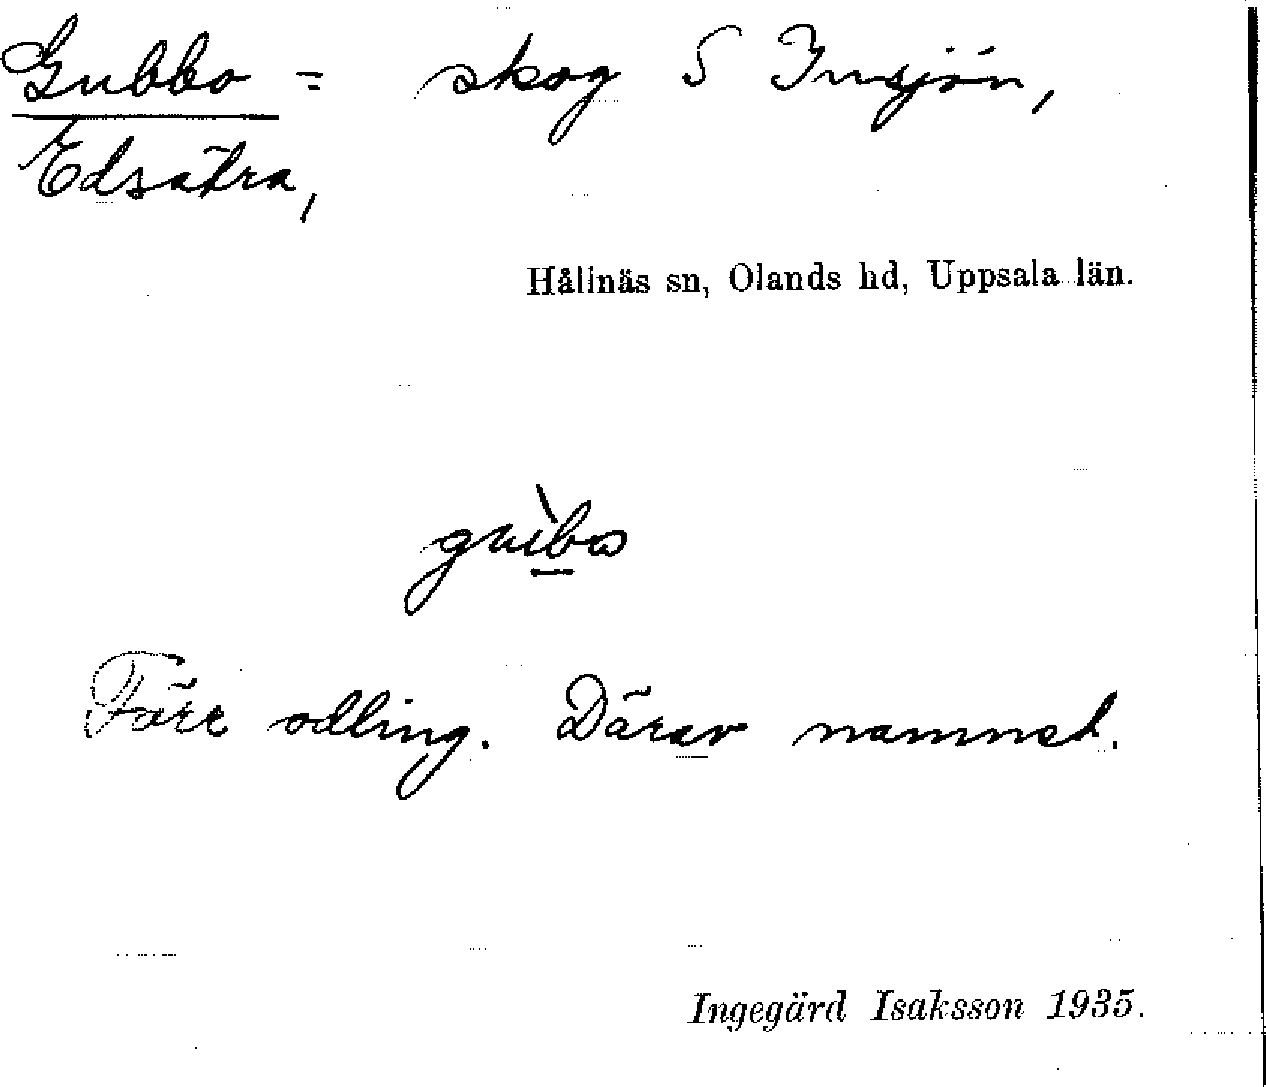 Gubbo = skog S Insjön,
Edsätra,
Hållnäs sn, Olands hd, Uppsala län.
Förr odling. Därav namnet.
Ingegärd Isaksson 1935.